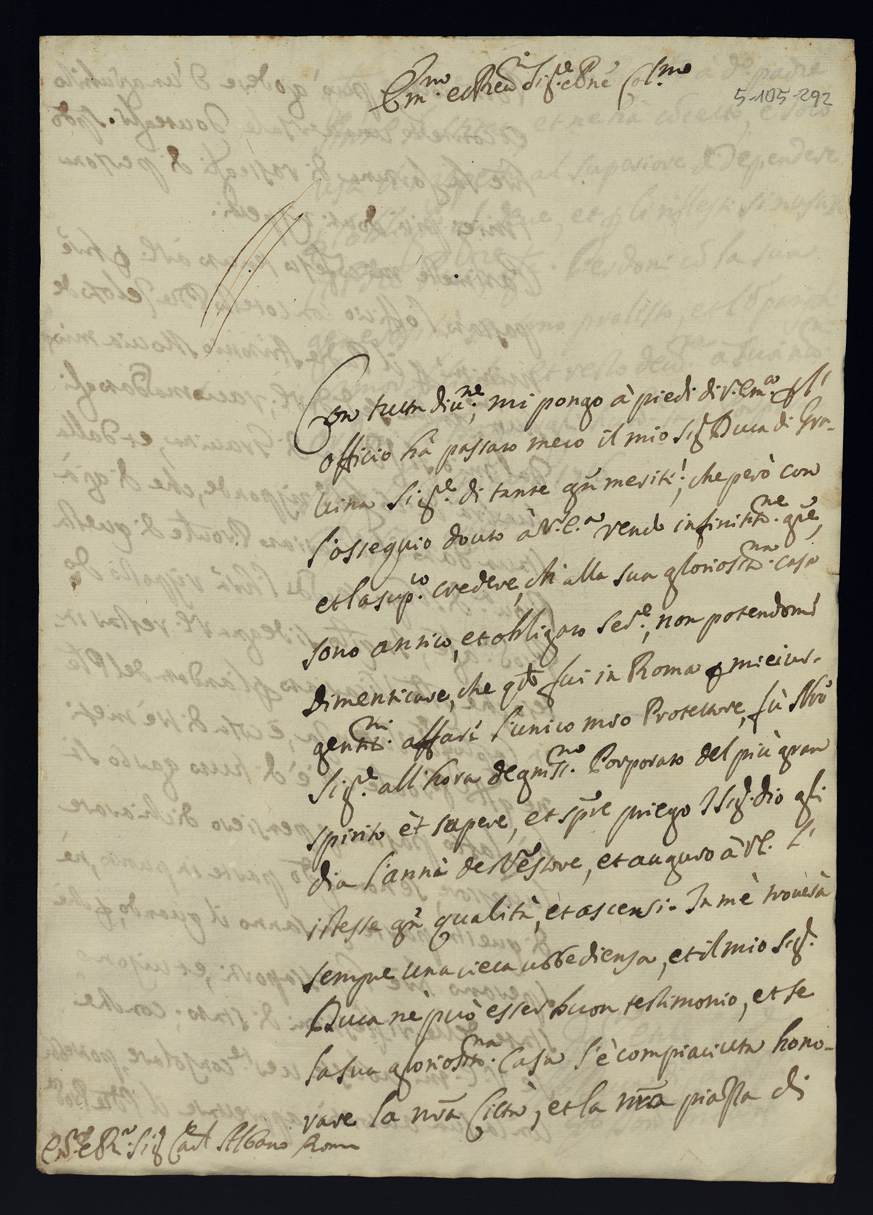 Em.mo e Rev.mo Sig.re e P.ne Col.mo
5-105-292
Con tutta div.ne, mi pongo à piedi di V. Em.a
officio hà passato meco il mio Sig.r Duca di Gra-
vina Sig.re di tante gn meriti, che però con
l'osseguio douto à V. E.a rendo infinitiss.me gre,
et la sup.co credere, ch'alla sua gloriosiss.ma casa
sono antico, et obligato Se.re, non potendomi
dimenticare, che q.do fui in Roma p miei ur-
gentiss.mi affari l'unico mio Protettore, fù N'ro
Sig.re all'hora degniss.mo Porporato del più gran
spirito et sapere, et s'pre priego I Sig. dio gli
dia l'anni de Nestore, et auguro à V. E. l'
istesse gn qualità, et ascensi. In mè trouerà
sempre una cieca ubbedienza, et il mio Sig.r
Duca nè può esser buon testimonio, et se
la sua gloriosiss.ma Casa s'è compiaciuta hono-
rare la n'ra Città, et la n'ra piazza di
Sig. Card. Albano Roma